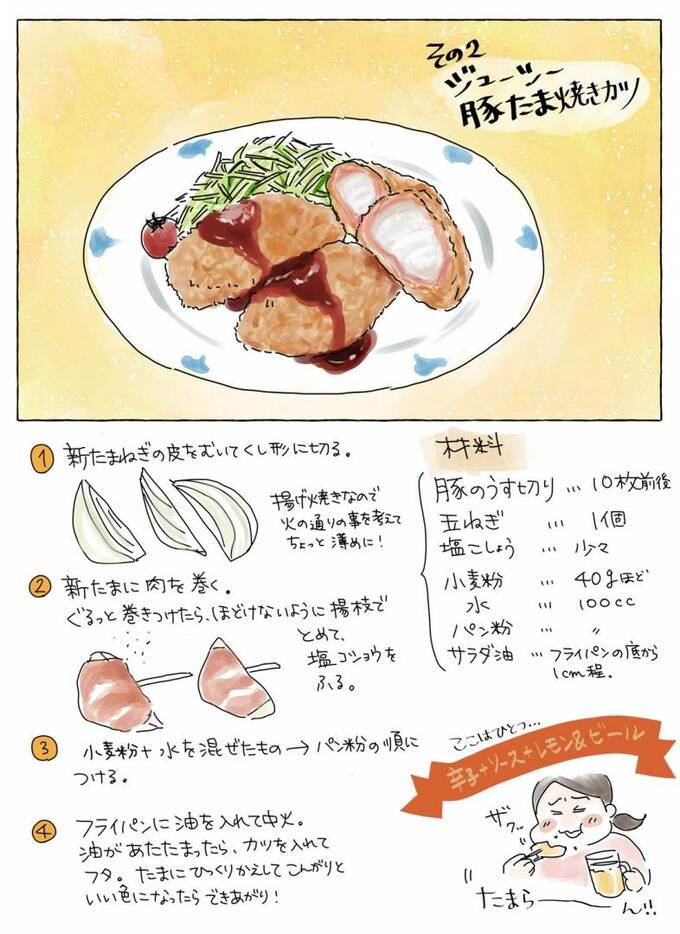 その2
ジューシー
豚たま焼きカツ
1 新たまねぎの皮をむいてくし形に切る。
揚げ焼きなので
火の通りの事を考えて
ちょっと薄めに!
2 新たまに肉を巻く。
ぐるっと巻きつけたら、ほどけないように楊枝で
とめて、
塩コショウを
ふる。
3 小麦粉+水を混ぜたもの→パン粉の順に
つける。
4 フライパンに油を入れて中火。
油があたたまったら、カツを入れて
フタ。たまにひっくりかえしてこんがりと
いい色になったらできあがり!
材料
豚のうす切り…10枚前後
玉ねぎ…1個
塩こしょう…少々
小麦粉…40gほど
水…100cc
パン粉…〃
サラダ油…フライパンの底から
1cm程。
ここはひとつ…
辛子+ソース+レモン&ビール
ザクッ
"たまら——
ん!!